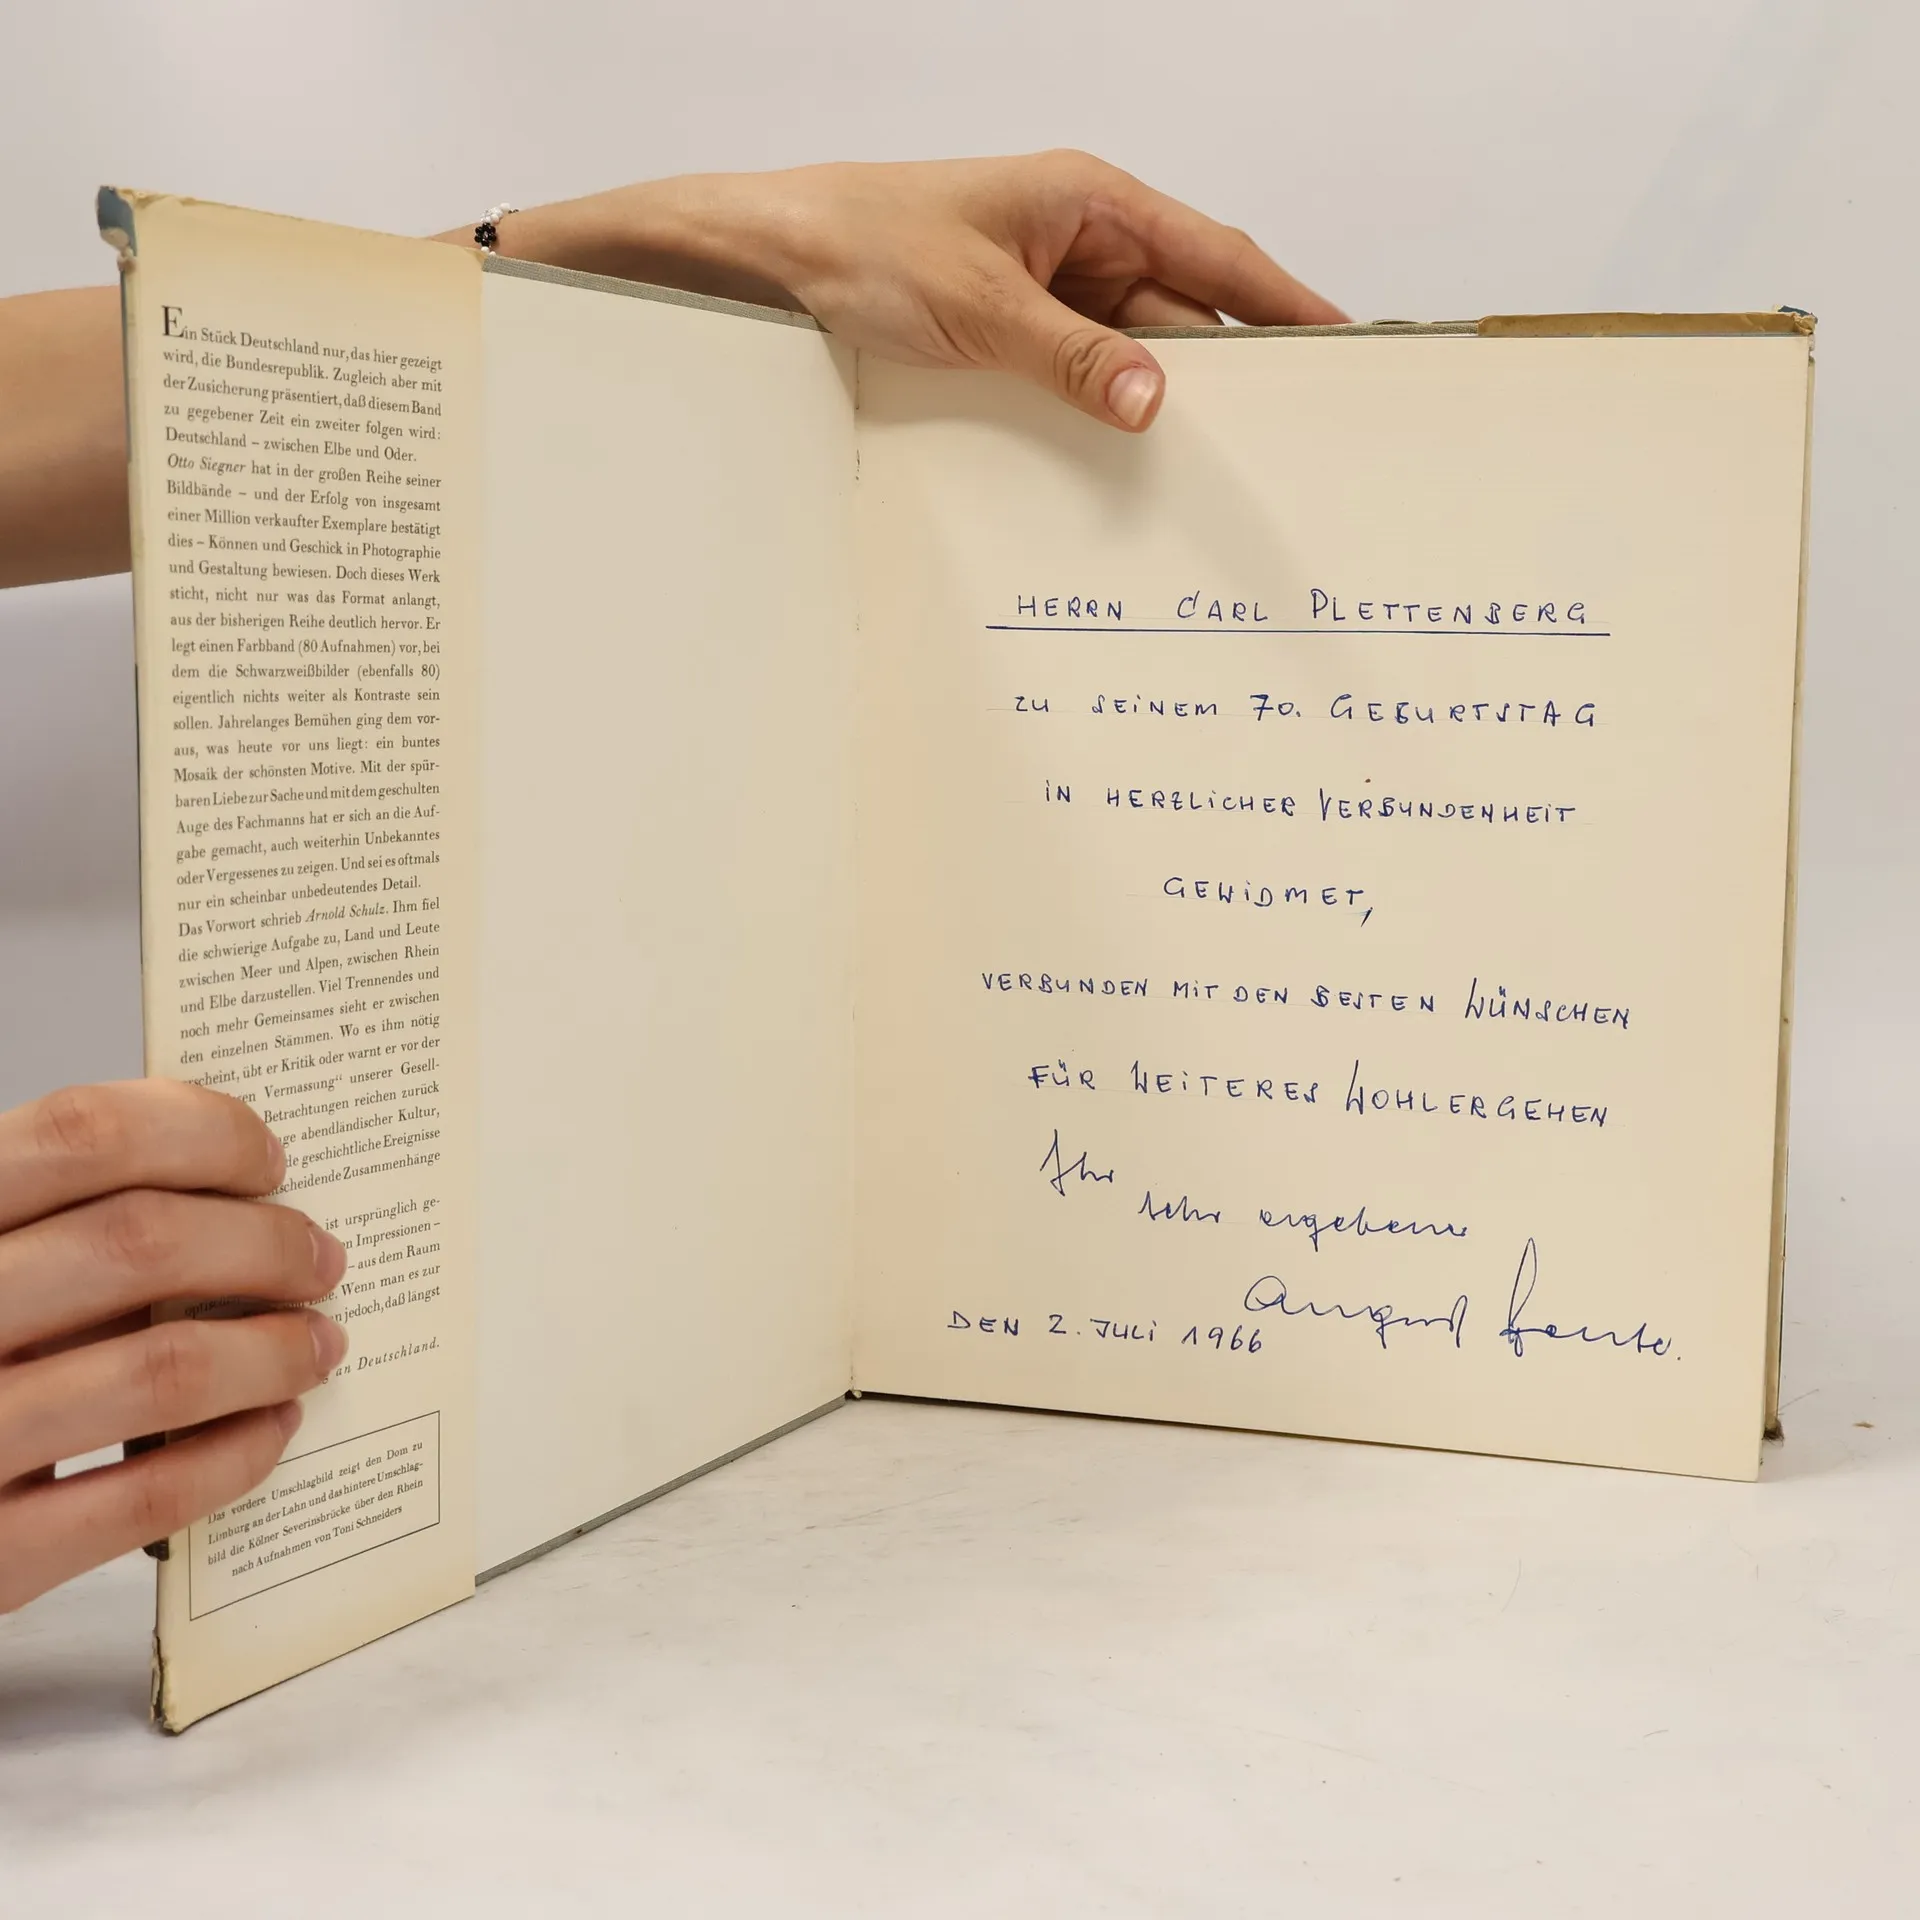 Ein Stück Deutschland nur, das hier gezeigt
wird, die Bundesrepublik. Zugleich aber mit
der Zusicherung präsentiert, daß diesem Band
zu gegebener Zeit ein zweiter folgen wird:
Deutschland – zwischen Elbe und Oder.
Otto Siegner hat in der großen Reihe seiner
Bildbände – und der Erfolg von insgesamt
einer Million verkaufter Exemplare bestätigt
dies – Können und Geschick in Photographie
und Gestaltung bewiesen. Doch dieses Werk
sticht, nicht nur was das Format anlangt,
aus der bisherigen Reihe deutlich hervor. Er
legt einen Farbband (80 Aufnahmen) vor, bei
dem die Schwarzweißbilder (ebenfalls 80)
eigentlich nichts weiter als Kontraste sein
sollen. Jahrelanges Bemühen ging dem vor-
aus, was heute vor uns liegt: ein buntes
Mosaik der schönsten Motive. Mit der spür-
baren Liebe zur Sache und mit dem geschulten
Auge des Fachmanns hat er sich an die Auf-
gabe gemacht, auch weiterhin Unbekanntes
oder Vergessenes zu zeigen. Und sei es oftmals
nur ein scheinbar unbedeutendes Detail.
Das Vorwort schrieb Arnold Schulz. Ihm fiel
die schwierige Aufgabe zu, Land und Leute
zwischen Meer und Alpen, zwischen Rhein
und Elbe darzustellen. Viel Trennendes und
noch mehr Gemeinsames sieht er zwischen
den einzelnen Stämmen. Wo es ihm nötig
erscheint, übt er Kritik oder warnt er vor der
Vermassung“ unserer Gesell-
Betrachtungen reichen zurück
abendländischer Kultur,
geschichtliche Ereignisse
scheidende Zusammenhänge
ist ursprünglich ge-
Impressionen –
– aus dem Raum
Wenn man es zur
jedoch, daß längst
an Deutschland.
Das vordere Umschlagbild zeigt den Dom zu
Limburg an der Lahn und das hintere Umschlag-
bild die Kölner Severinsbrücke über den Rhein
nach Aufnahmen von Toni Schneiders
HERRN CARL PLETTENBERG
ZU SEINEM 70. GEBURTSTAG
IN HERZLICHER VERBUNDENHEIT
GEWIDMET,
VERBUNDEN MIT DEN BESTEN WÜNSCHEN
FÜR WEITERES WOHLERGEHEN
Ihr
sehr ergebener
August
DEN 2. JULI 1966